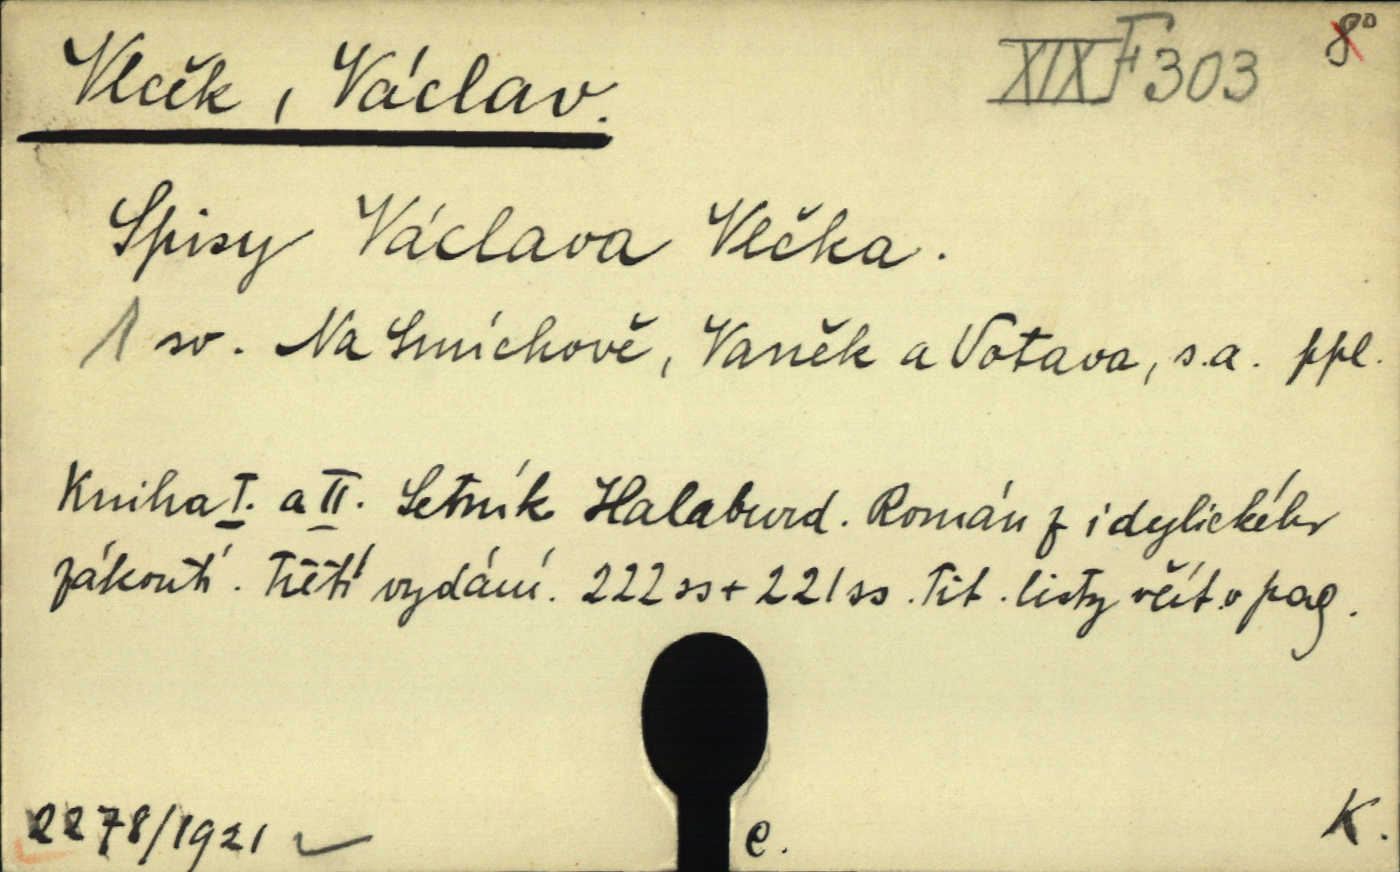 Vlček, Václav.
XIX F 303
8°
Spisy Václava Vlčka.
1 sv. Na Smíchově, Vaněk a Votava, s.a. ppl.
Kniha I. a II. Setník Halaburd. Román z idylického
zákoutí. Třetí vydání. 222 ss + 221 ss. Tit. listy včít. v pag.
2278/1921
C.
K.